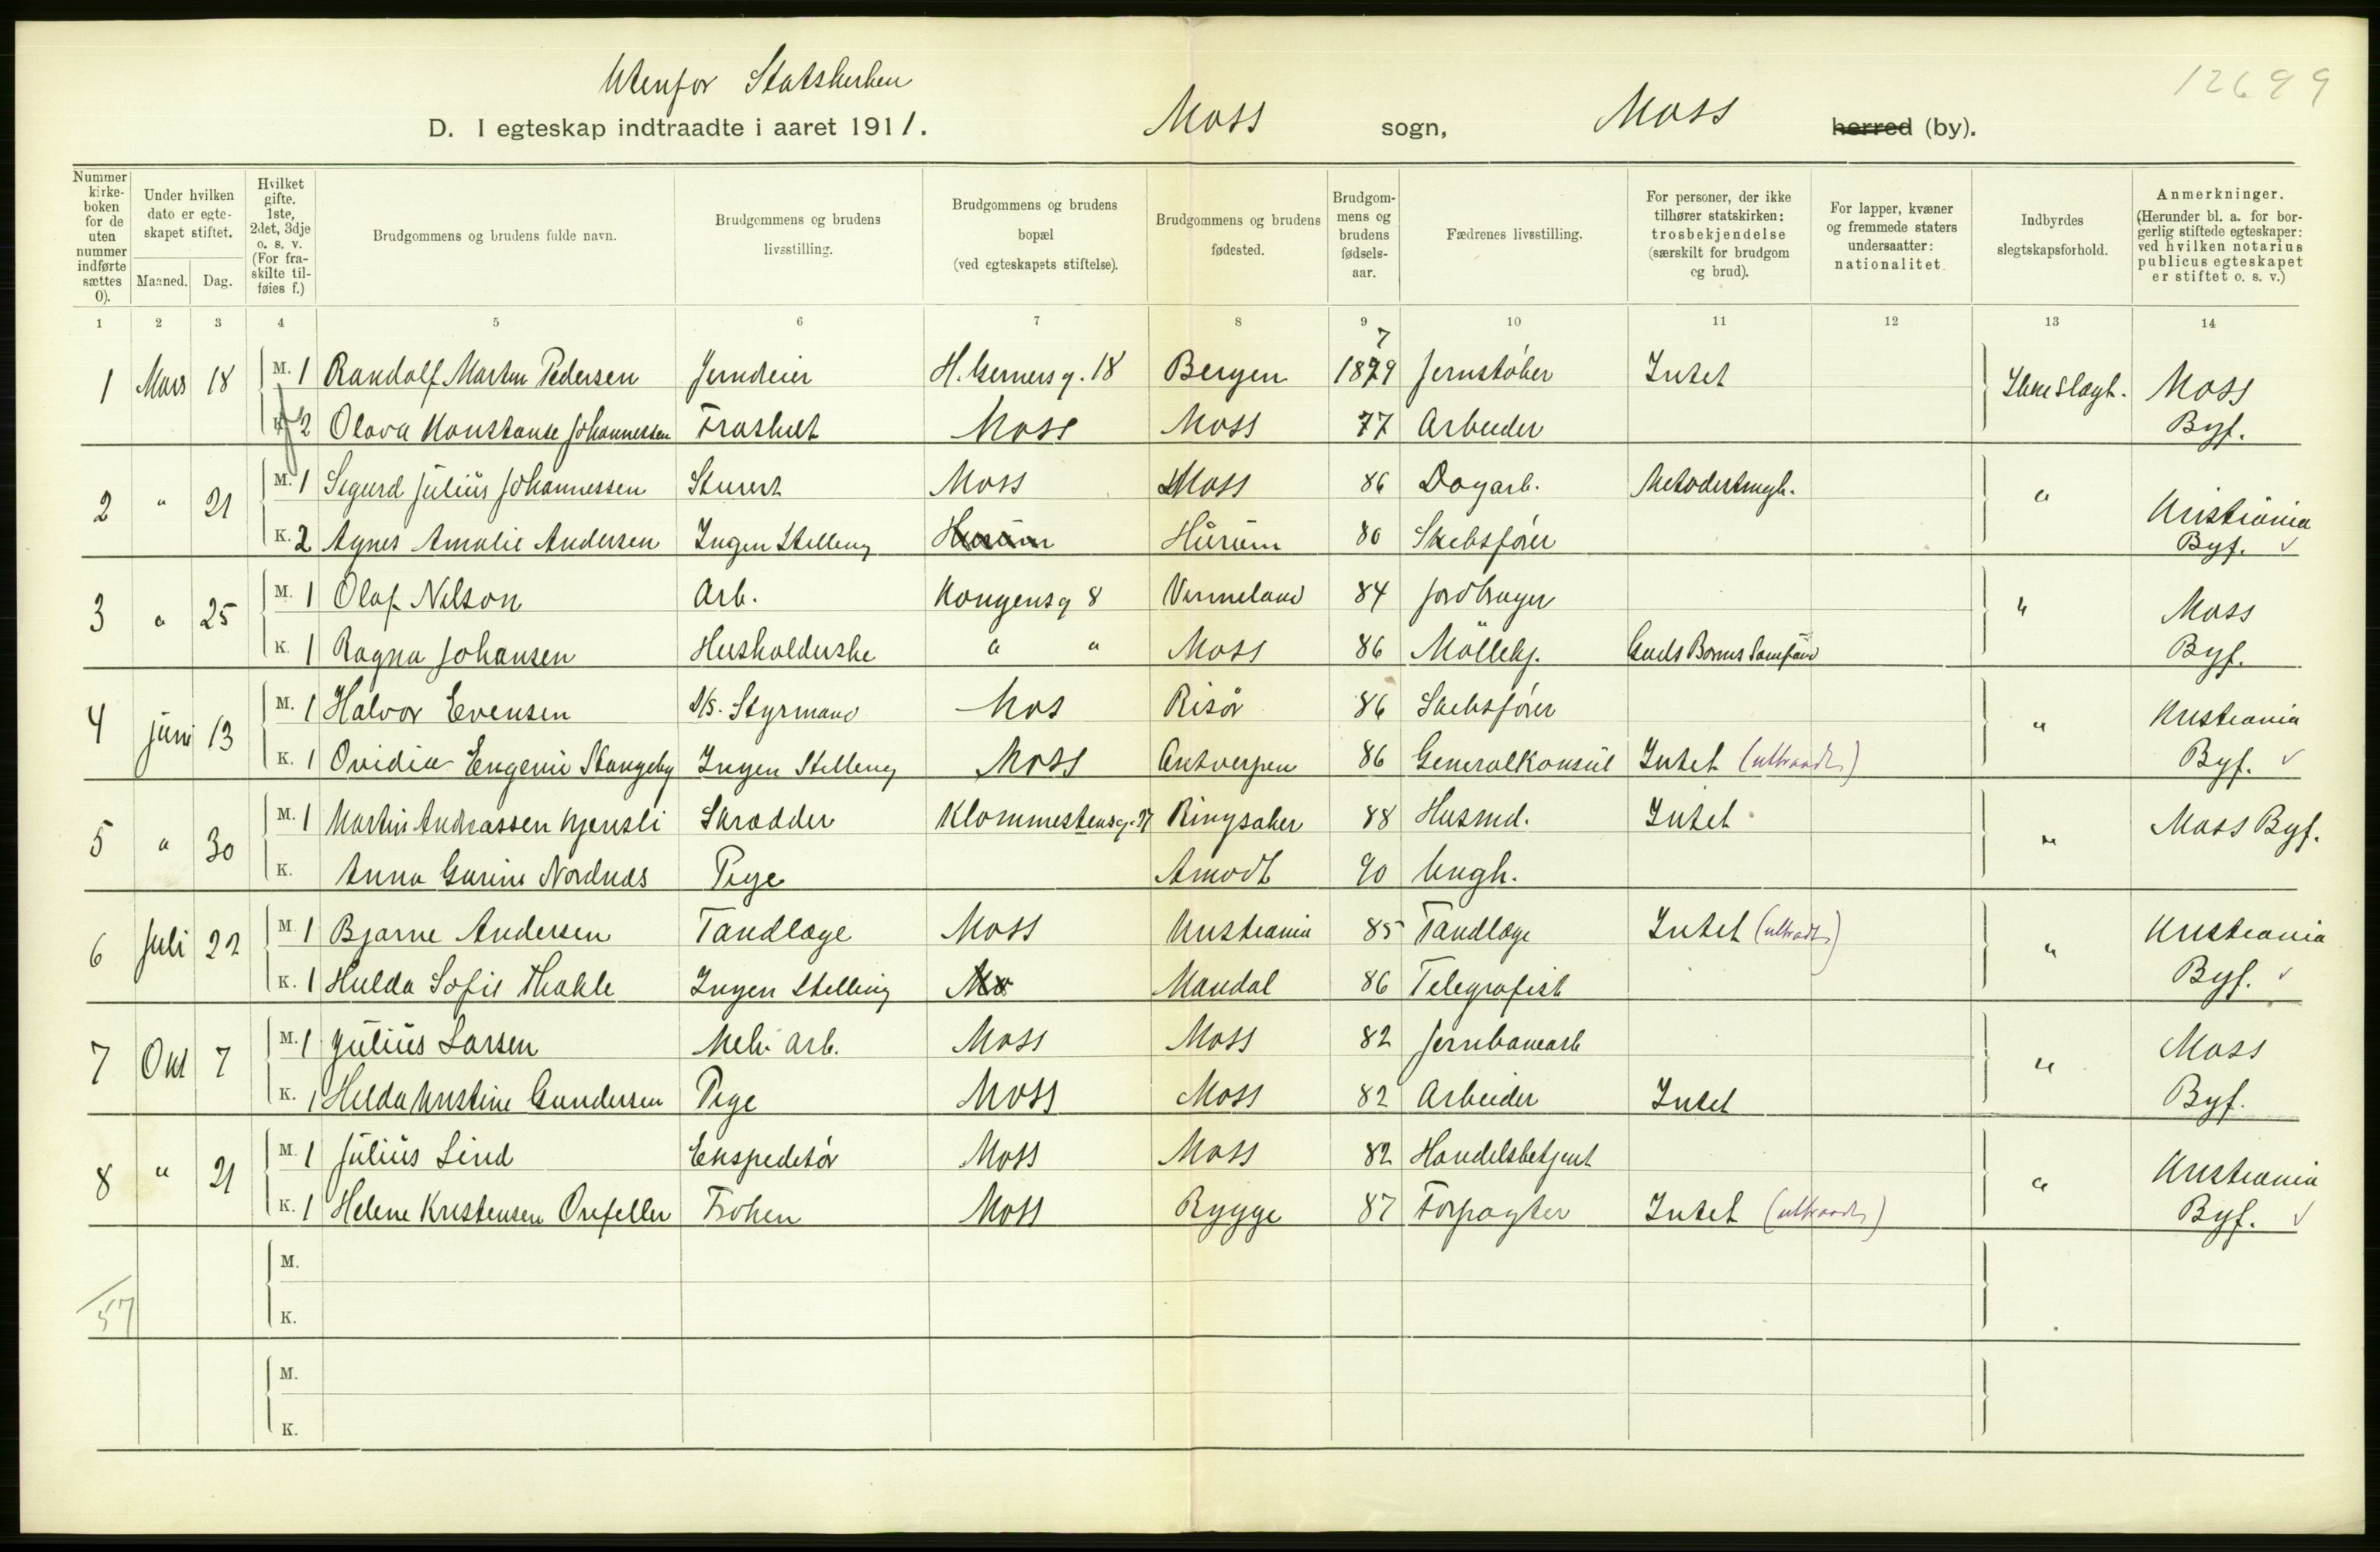 Utenfor Statskirken
12699
D. I egteskap indtraadte i aaret 1911. Moss sogn, Moss herred (by).
Nummer kirkeboken for de uten nummer indførte sættes 0).
Under hvilken dato er egteskapet stiftet.
Maaned. Dag.
Hvilket gifte. 1ste, 2det, 3dje o. s. v. (For fraskilte tilføies f.)
Brudgommens og brudens fulde navn.
Brudgommens og brudens livsstilling.
Brudgommens og brudens bopæl (ved egteskapets stiftelse).
Brudgommens og brudens fødested.
Brudgommens og brudens fødselsaar.
Fædrenes livsstilling.
For personer, der ikke tilhører statskirken: trosbekjendelse (særskilt for brudgom og brud).
For lapper, kvæner og fremmede staters undersaatter: nationalitet.
Indbyrdes slegtskapsforhold.
Anmerkninger. (Herunder bl. a. for borgerlig stiftede egteskaper: ved hvilken notarius publicus egteskapet er stiftet o. s. v.)
1 2 3 4 5 6 7 8 9 10 11 12 13 14
1 Mars 18 M. 1 Randolf Martin Pedersen Jerndreier H. Gernersg. 18 Bergen 1879 Jernstøber Intet Ikke slægt. Moss
K. 2 Olava Konstanse Johannessen Fraskilt Moss Moss 77 Arbeider Byf.
2 " 21 M. 1 Sigurd Julius Johannessen Stuert Moss Moss 86 Dagarb. Metodistmgh. " Kristiania
K. 2 Agnes Amalie Andersen Ingen Stilling Hurum Hurum 80 Skibsfører Byf. ✓
3 " 25 M. 1 Olaf Nilson Arb. Kongensg 8 Vermeland 84 Jordbruger " Moss
K. 1 Ragna Johansen Husholderske " " Moss 86 Möllebj. Guds Borns Samfund Byf.
4 Juni 13 M. 1 Halvor Evensen S/S. Styrmand Mos Risør 86 Skibsfører " Kristiania
K. 1 Ovidia Eugenie Stangeby Ingen Stilling Moss Antverpen 86 Generalkonsul Intet (utraadt) Byf. ✓
5 " 30 M. 1 Martin Andreassen Kjernsli Skrædder Klommestensg. 27 Ringsaker 88 Husmd. Intet " Moss Byf.
K. Anna Gurine Nordnæs Pige Amodt 90 Ungk.
6 Juli 22 M. 1 Bjarne Andersen Tandlæge Moss Kristiania 85 Tandlæge Intet (utraadt) " Kristiania
K. 1 Hulda Sofie Thakle Ingen Stilling Mo Mandal 86 Telegrafist Byf. ✓
7 Okt 7 M. 1 Julius Larsen Mek. arb. Moss Moss 82 Jernbanearb " Moss
K. 1 Hilda Kristine Gundersen Pige Moss Moss 82 Arbeider Intet Byf.
8 " 21 M. 1 Julius Lind Ekspeditør Moss Moss 82 Handelsbetjent " Kristiania
K. 1 Helene Kristensen Orefeller Frøken Moss Rygge 87 Forpagter Intet (utraadt) Byf. ✓
M.
57 K.
M.
K.